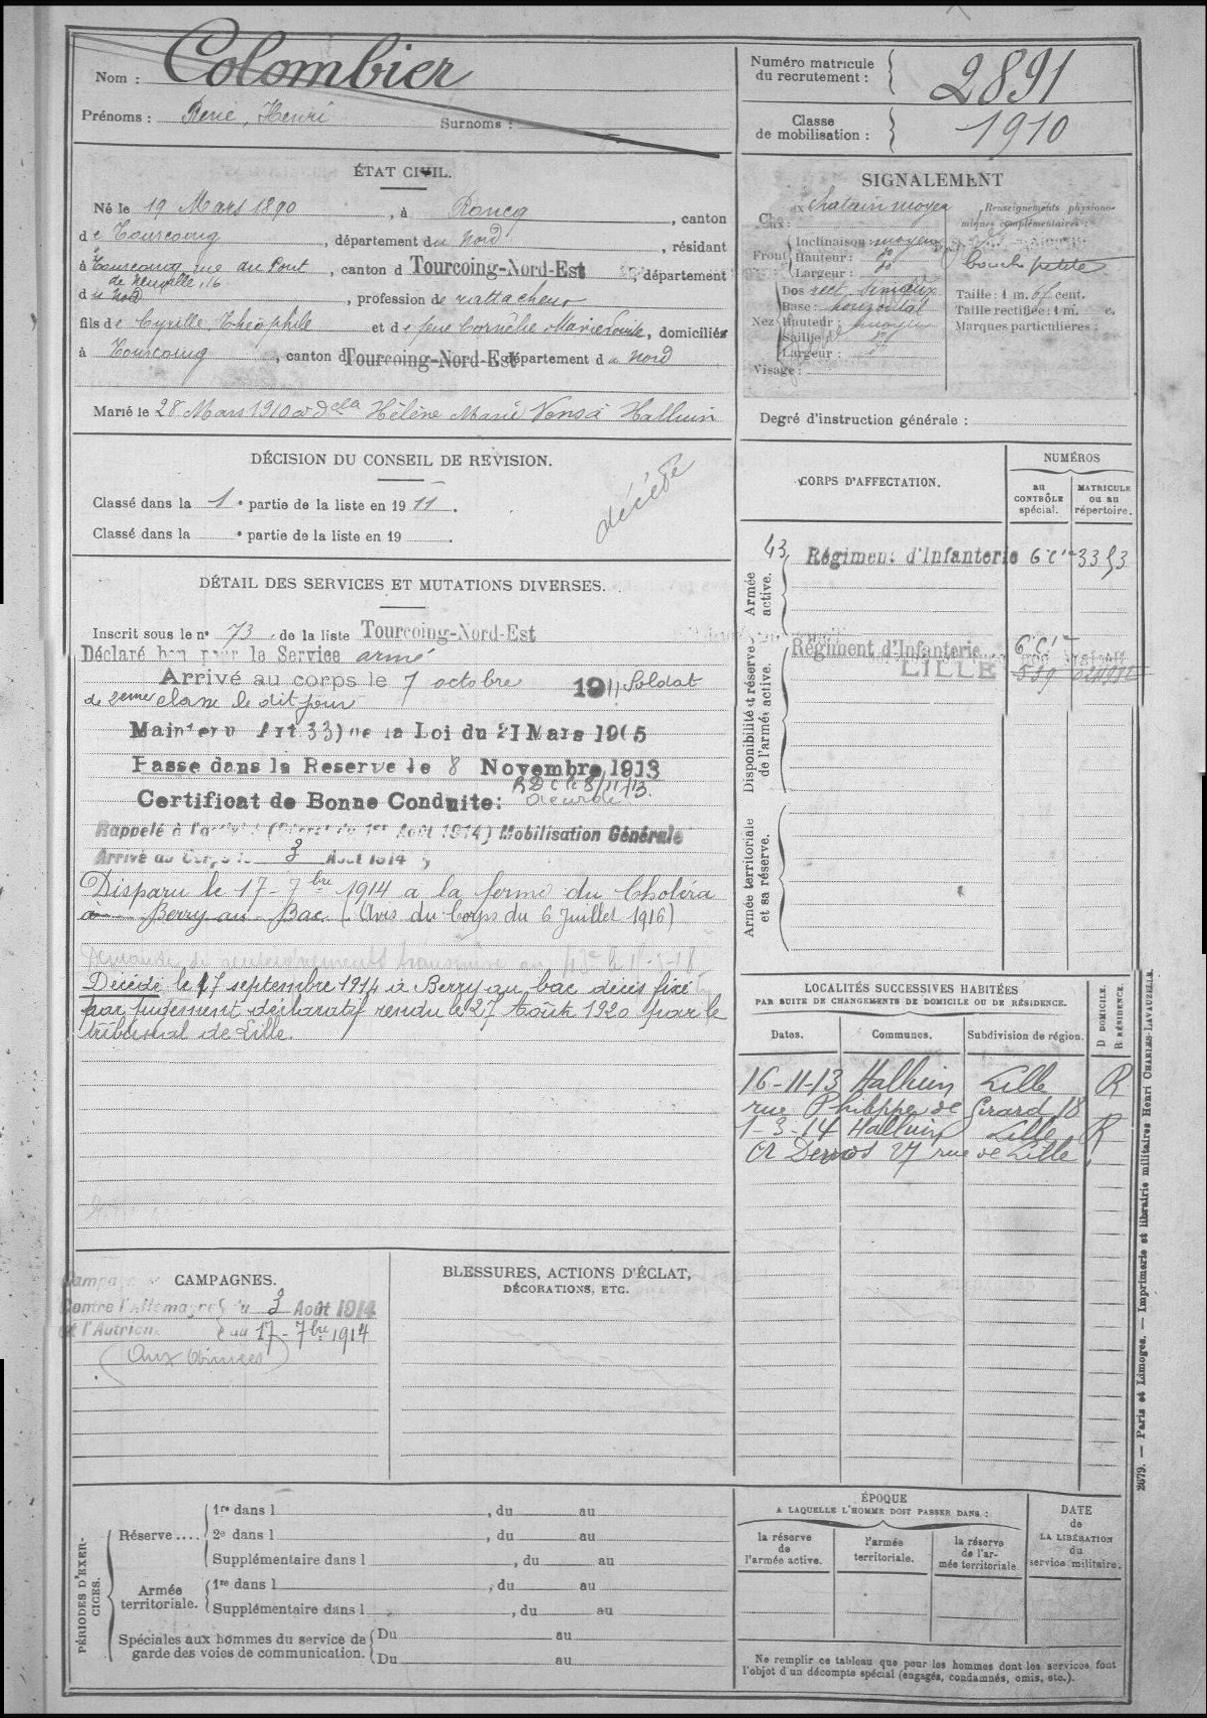 Nom : Colombier
Prénoms : René, Henri Surnoms :
Numéro matricule du recrutement : 2891
Classe de mobilisation : 1910
ÉTAT CIVIL.
Né le 19 Mars 1890, à Roncq, canton
de Tourcoing, département du Nord, résidant
à Tourcoing rue du Pont de Neuville, 16, canton d Tourcoing-Nord-Est, département
du Nord, profession de rattacheur
fils de Cyrille, Théophile et de feue Cornélie Marie Louise, domiciliés
à Tourcoing, canton d Tourcoing-Nord-Est département du Nord
Marié le 28 Mars 1910 à Delle Hélène Marie Vens à Halluin
SIGNALEMENT
Cheveux chatain moyen
Front Inclinaison moyen
Hauteur :
Largeur :
Nez Dos rect. sinueux
Base : horizontal
Hauteur : moyen
Saillie :
Largeur :
Visage :
Renseignements physionomiques complémentaires :
bouche petite
Taille : 1 m. 65 cent.
Taille rectifiée : 1 m. c.
Marques particulières :
Degré d'instruction générale :
DÉCISION DU CONSEIL DE REVISION.
Classé dans la 1e partie de la liste en 1911.
Classé dans la e partie de la liste en 19 .
décédé
DÉTAIL DES SERVICES ET MUTATIONS DIVERSES.
Inscrit sous le n° 73 de la liste Tourcoing-Nord-Est
Déclaré bon pour le Service armé
Arrivé au corps le 7 octobre 1911 Soldat
de 2eme classe le dit jour
Maintenu Art 33) de la Loi du 21 Mars 1905
Passé dans la Reserve le 8 Novembre 1913
Certificat de Bonne Conduite: accordé
Rappelé à l'activité (Décret du 1er Août 1914) Mobilisation Générale
Arrivé au Corps le 3 Août 1914
Disparu le 17-7bre 1914 a la ferme du Choléra
à Berry au Bac. (Avis du Corps du 6 Juillet 1916)
Décédé le 17 septembre 1914 à Berry au bac décès fixé
par jugement déclaratif rendu le 27 Août 1920 par le
tribunal de Lille.
CORPS D'AFFECTATION.
NUMÉROS
au CONTRÔLE spécial.
MATRICULE ou au répertoire.
Armée active.
43 Régiment d'Infanterie 6 Cie 3353
Disponibilité et réserve de l'armée active.
Régiment d'Infanterie 6 Cie
LILLE 589
Armée territoriale et sa réserve.
LOCALITÉS SUCCESSIVES HABITÉES
PAR SUITE DE CHANGEMENTS DE DOMICILE OU DE RÉSIDENCE.
Dates. Communes. Subdivision de région. D DOMICILE. R RÉSIDENCE.
16-11-13 Halluin Lille R
rue Philippe de Girard 18
1-3-14 Halluin Lille R
27 rue de Lille
CAMPAGNES.
Campagne
Contre l'Allemagne du 3 Août 1914
et l'Autriche au 17-7bre 1914
(Aux Armées)
BLESSURES, ACTIONS D'ÉCLAT,
DÉCORATIONS, ETC.
PÉRIODES D'EXERCICES.
Réserve.... 1re dans l , du au
2e dans l , du au
Supplémentaire dans l , du au
Armée territoriale. 1re dans l , du au
Supplémentaire dans l , du au
Spéciales aux hommes du service de garde des voies de communication. Du au
Du au
ÉPOQUE
A LAQUELLE L'HOMME DOIT PASSER DANS :
la réserve de l'armée active.
l'armée territoriale.
la réserve de l'armée territoriale
DATE de LA LIBÉRATION du service militaire.
Ne remplir ce tableau que pour les hommes dont les services font
l'objet d'un décompte spécial (engagés, condamnés, omis, etc.).
2679. — Paris et Limoges. — Imprimerie et librairie militaires Henri CHARLES-LAVAUZELLE.